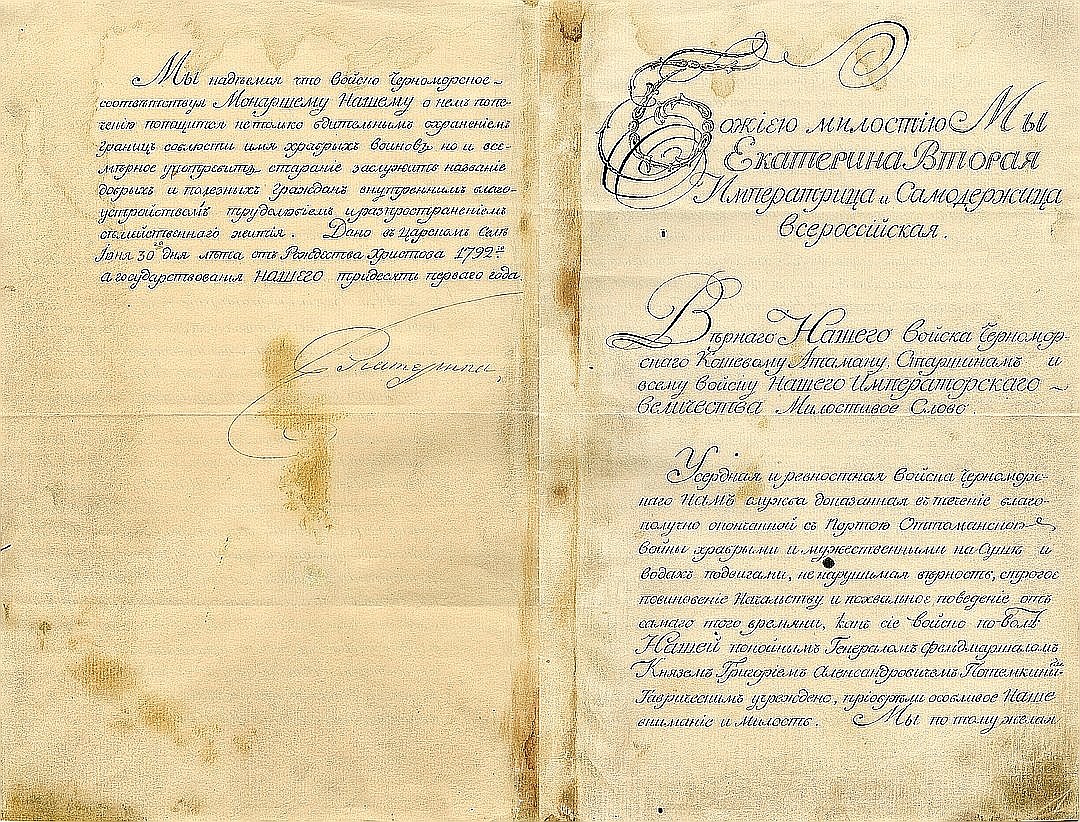 Мы надѣемся что войско Черноморское
соотвѣтствуя Монаршему Нашему о немъ попе-
ченію потщится не только бдительнымъ охраненіемъ
границъ соблюсти имя храбрыхъ воиновъ, но и все-
мѣрное употребитъ стараніе заслужить названіе
добрыхъ и полезныхъ гражданъ внутреннимъ благо-
устройствомъ трудолюбіемъ и распространеніемъ
семейственнаго житія. Дано въ Царскомъ Селѣ
Іюня 30го дня лѣта отъ Рождества Христова 1792го
а государствованія НАШЕГО тридесять перваго года.
Екатерина
Божіею милостію Мы
Екатерина Вторая
Императрица и Самодержица
Всероссійская.
Вѣрнаго Нашего Войска Черномор-
скаго Кошевому Атаману, Старшинамъ и
всему Войску Нашего Императорскаго
Величества Милостивое Слово.
Усердная и ревностная Войска Черномор-
скаго НАМЪ служба доказанная въ теченіе благо-
получно оконченной съ Портою Оттоманскою
войны храбрыми и мужественными на Сушѣ и
водахъ подвигами, ненарушимая вѣрность, строгое
повиновеніе Начальству и похвальное поведеніе отъ
самаго того времяни, какъ сіе войско по волѣ
Нашей покойнымъ Генераломъ фельдмаршаломъ
Княземъ Григоріемъ Александровичемъ Потемкинымъ
Таврическимъ учреждено, пріобрѣли особливое Наше
вниманіе и милость. Мы по тому желая